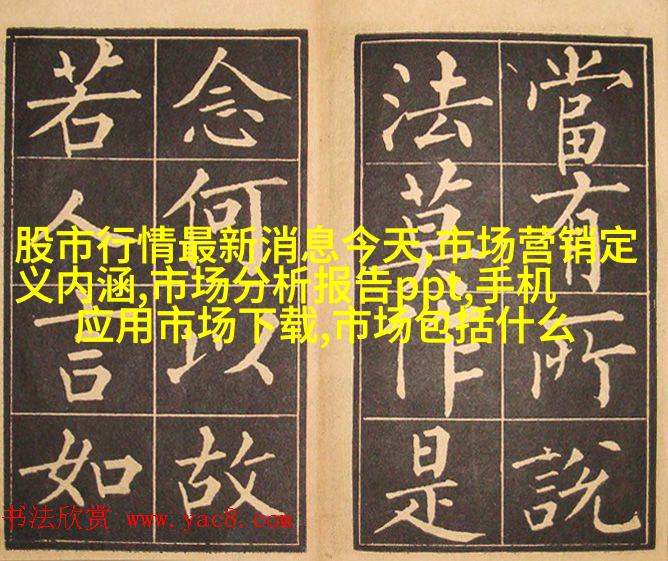 當有所說
法莫作是
念何以故
若人言如
股市行情最新消息今天,市场营销定
义内涵,市场分析报告ppt,手机
应用市场下载,市场包括什么
书法欣赏 www.yac8.com